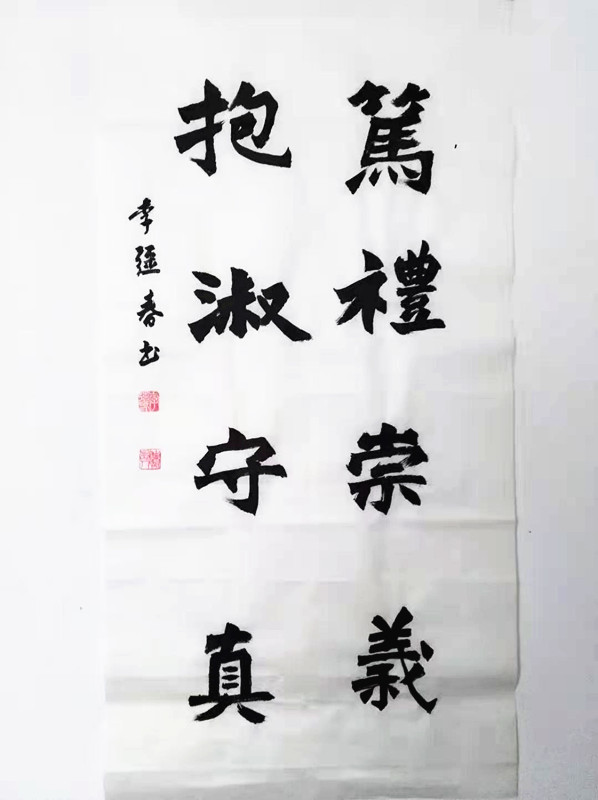 篤禮崇義
抱淑守真
李延春书